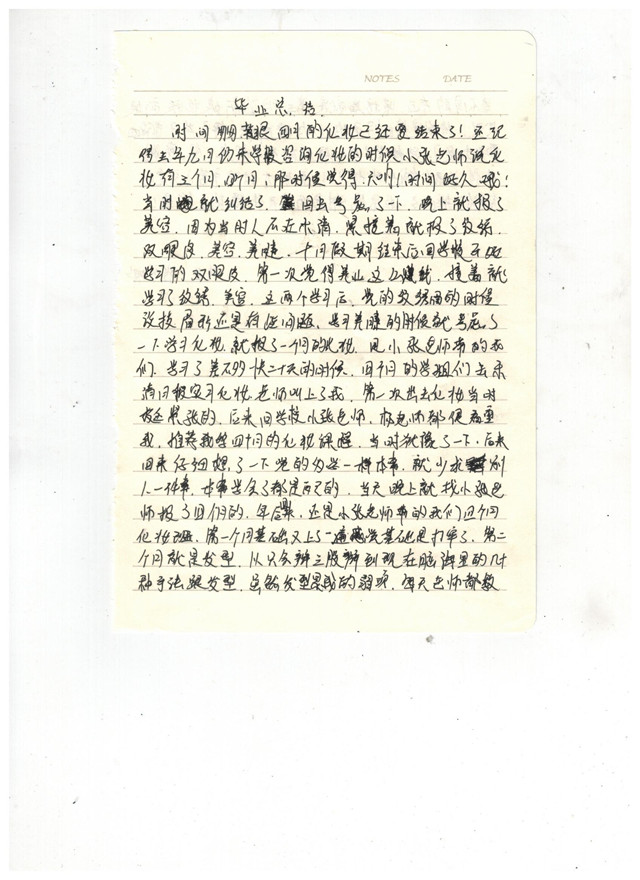 NOTES DATE
毕业总结
时间眼四月的化妆已经要结束了！还记
得去年九月份来学校咨询化妆的时候小张老师说化
妆有三个月、四个月，那时候觉得，天呐！时间好久哦！
当时就纠结了，回去考虑了一下，晚上就报了
美容，因为当时人在水清，紧接着就报了纹绣，
双眼皮，美容，美睫，十月假期结束后回学校开始
学习的双眼皮，第一次觉得美业这么赚钱，接着就
学习了纹绣，美容，这两个学习后，觉的纹绣的时候
没技眉形还是存在问题，学习美睫的时候就考虑了
一下学习化妆，就报了一个月的化妆，是小张老师带的我
们，学习了差不多快二十天的时候，四个月的学姐们去乐
清实习化妆，老师叫上了我，第一次出去化妆当时
挺紧张的，后来回学校小张老师，杨老师都很看重
我，推荐我学四个月的化妆课程，当时犹豫了一下，后来
回来仔细想了一下觉的多学一样本事，就少求别
人一件事，本事学会了都是自己的，当天晚上就找小张老
师报了四个月的，年后，还是小张老师带的我们四个月
化妆班，第一个月基础又上了一遍，基础是打牢了，第二
个月就是发型，从只会辫三股辫到现在脑海里的几十
种手法跟发型，虽然发型是我的弱项，每天老师都教